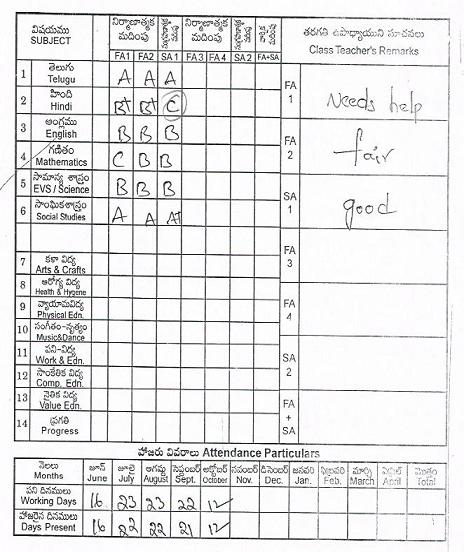 విషయము
SUBJECT
నిర్మాణాత్మక
మదింపు
నిర్మాణాత్మక
మదింపు
తరగతి ఉపాధ్యాయుని సూచనలు
Class Teacher's Remarks
FA1 FA2 SA1 FA3 FA4 SA2 FA+SA
1 తెలుగు
Telugu A A A
FA
1 Needs help
2 హింది
Hindi B+ B+ C
3 ఆంగ్లము
English B B B
FA
2 fair
4 గణితం
Mathematics C B B
5 సామాన్య శాస్త్రం
EVS / Science B B B
SA
1 good
6 సాంఘికశాస్త్రం
Social Studies A A A+
FA
3
7 కళా విద్య
Arts & Crafts
8 ఆరోగ్య విద్య
Health & Hygene
FA
4
9 వ్యాయామవిద్య
Physical Edn.
10 సంగీతం-నృత్యం
Music&Dance
11 పని-విద్య
Work & Edn.
SA
2
12 సాంకేతిక విద్య
Comp. Edn.
13 నైతిక విద్య
Value Edn.
FA
+
SA
14 ప్రగతి
Progress
హాజరు వివరాలు Attendance Particulars
నెలలు జూన్ జూలై ఆగష్టు సెప్టెంబర్ అక్టోబర్ నవంబర్ డిసెంబర్ జనవరి ఫిబ్రవరి మార్చి ఏప్రిల్ మొత్తం
Months June July August Sept. October Nov. Dec. Jan. Feb. March April Total
పని దినములు
Working Days 16 23 23 22 12
హాజరైన దినములు
Days Present 16 22 22 21 12